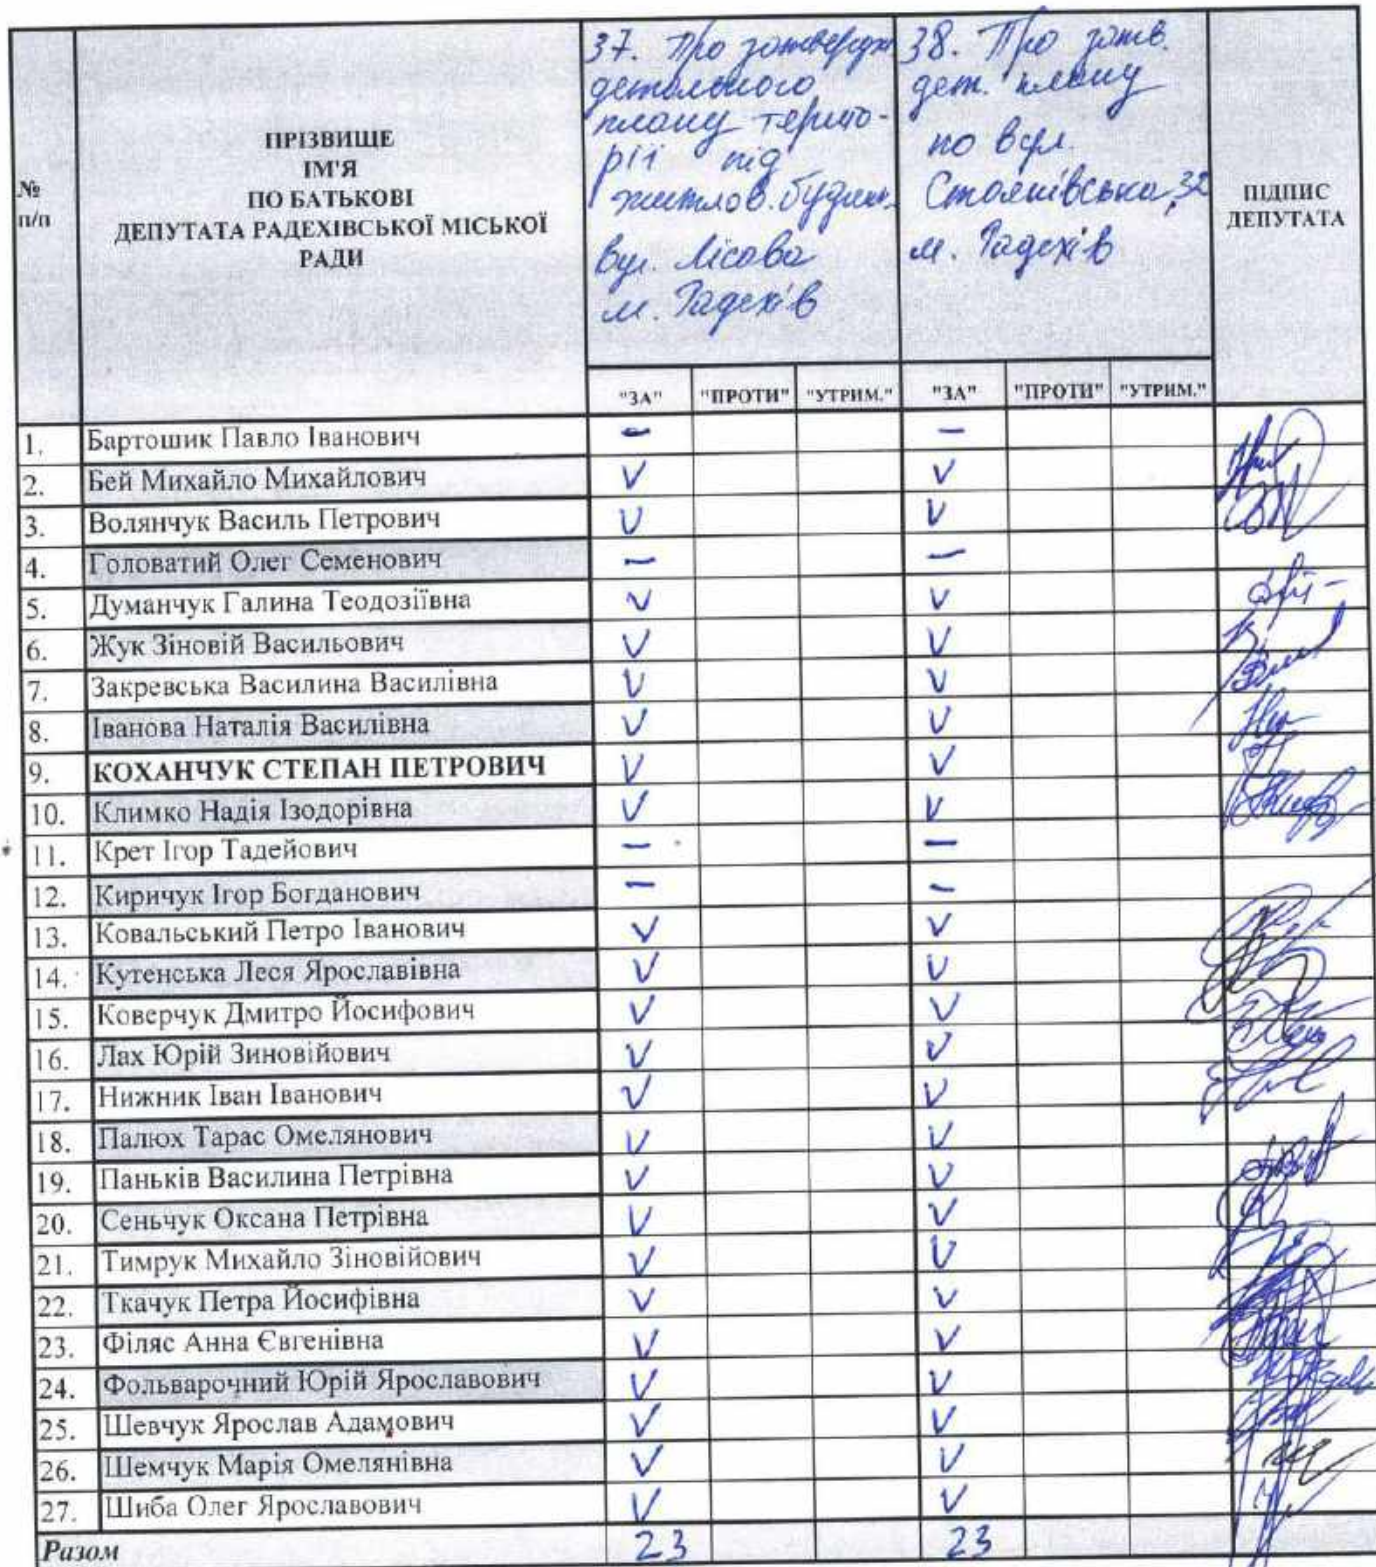 №
п/п
ПРІЗВИЩЕ
ІМ'Я
ПО БАТЬКОВІ
ДЕПУТАТА РАДЕХІВСЬКОЇ МІСЬКОЇ
РАДИ
37. Про затвердж
детального
плану терито-
рії під
житлов. будин.
вул. Лісова
м. Радехів
38. Про затв.
дет. плану
по вул.
Стоянівська, 32
м. Радехів
ПІДПИС
ДЕПУТАТА
"ЗА" "ПРОТИ" "УТРИМ." "ЗА" "ПРОТИ" "УТРИМ."
1. Бартошик Павло Іванович – –
2. Бей Михайло Михайлович V V
3. Волянчук Василь Петрович V V
4. Головатий Олег Семенович – –
5. Думанчук Галина Теодозіївна V V
6. Жук Зіновій Васильович V V
7. Закревська Василина Василівна V V
8. Іванова Наталія Василівна V V
9. КОХАНЧУК СТЕПАН ПЕТРОВИЧ V V
10. Климко Надія Ізодорівна V V
11. Крет Ігор Тадейович – –
12. Киричук Ігор Богданович – –
13. Ковальський Петро Іванович V V
14. Кутенська Леся Ярославівна V V
15. Коверчук Дмитро Йосифович V V
16. Лах Юрій Зиновійович V V
17. Нижник Іван Іванович V V
18. Палюх Тарас Омелянович V V
19. Паньків Василина Петрівна V V
20. Сеньчук Оксана Петрівна V V
21. Тимрук Михайло Зіновійович V V
22. Ткачук Петра Йосифівна V V
23. Філяс Анна Євгенівна V V
24. Фольварочний Юрій Ярославович V V
25. Шевчук Ярослав Адамович V V
26. Шемчук Марія Омелянівна V V
27. Шиба Олег Ярославович V V
Разом 23 23